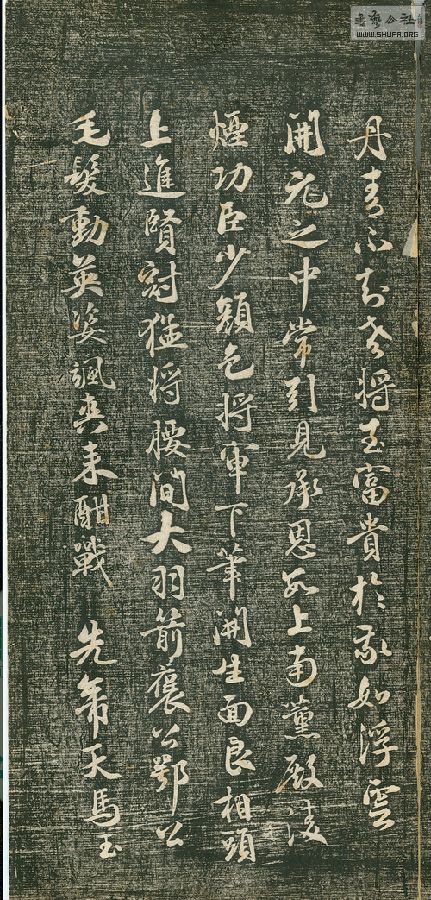 丹青不知老將至富貴於我如浮雲
開元之中常引見承恩數上南薰殿凌
煙功臣少顏色將軍下筆開生面良相頭
上進賢冠猛將腰間大羽箭褒公鄂公
毛髮動英姿颯爽来酣戰 先帝天馬玉
書藝公社
WWW.SHUFA.ORG